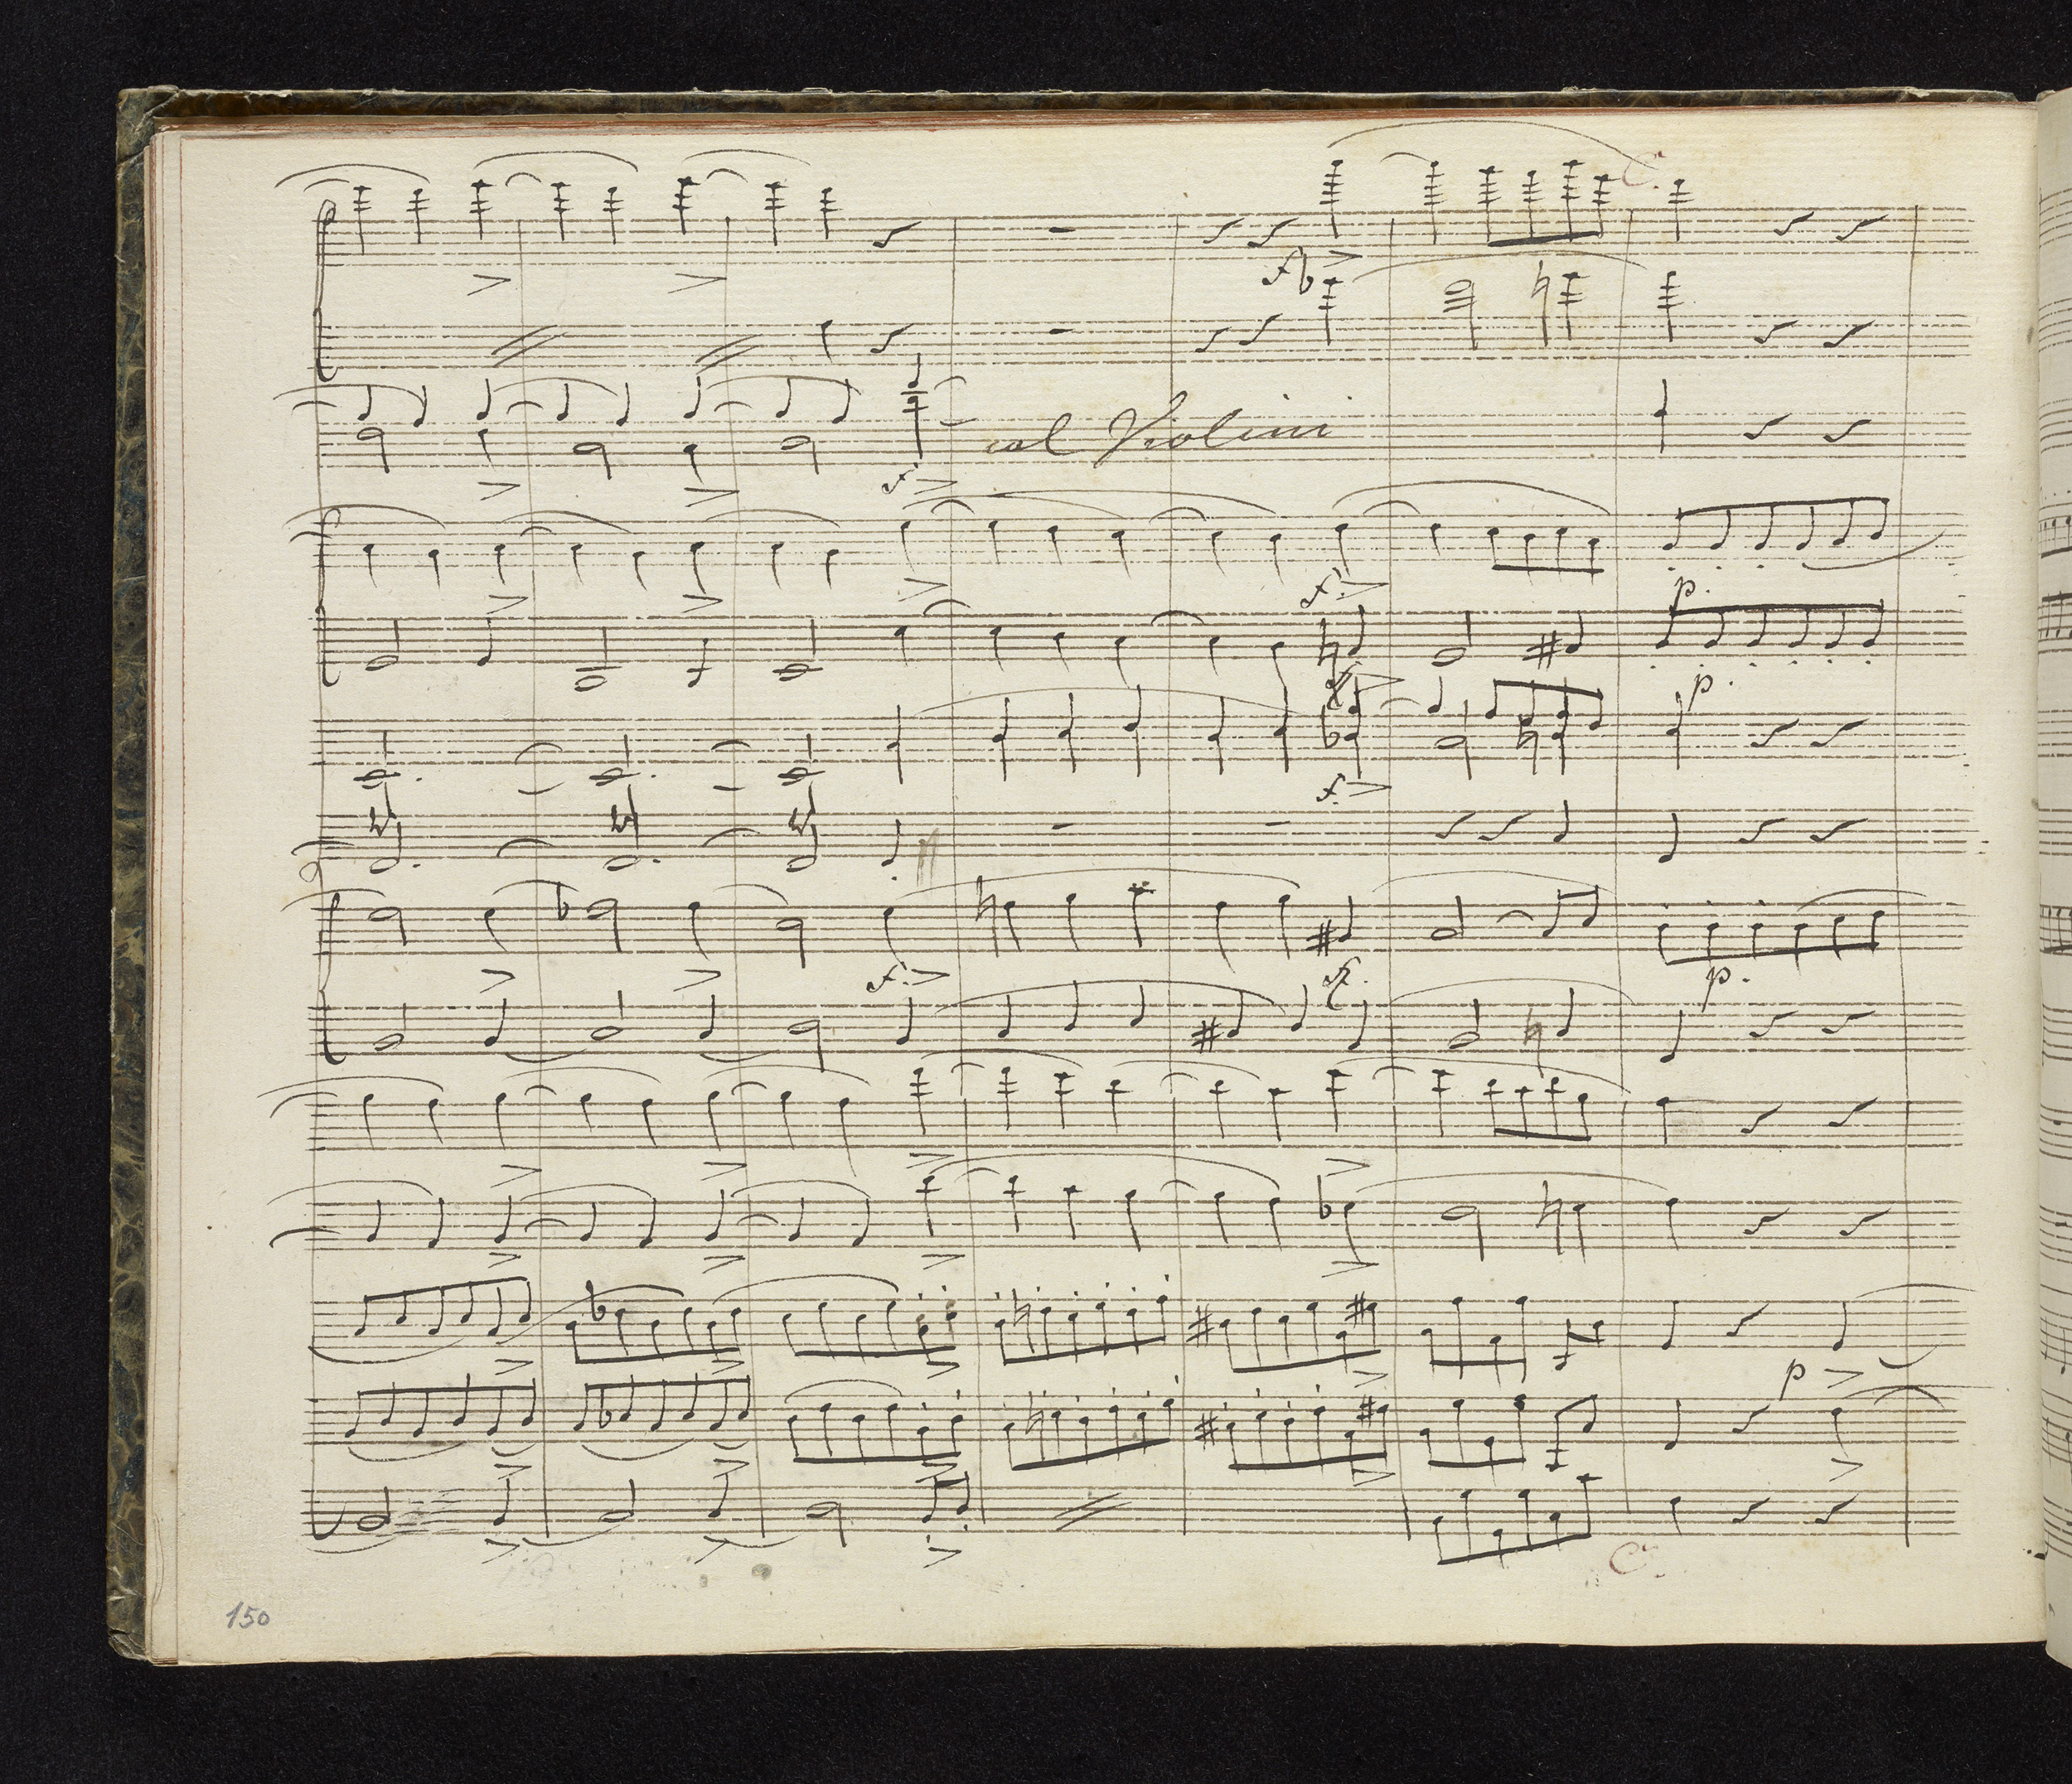 C.
f
f
col Violini
f
p.
p.
f.
f.
f.
p.
p
C.
150